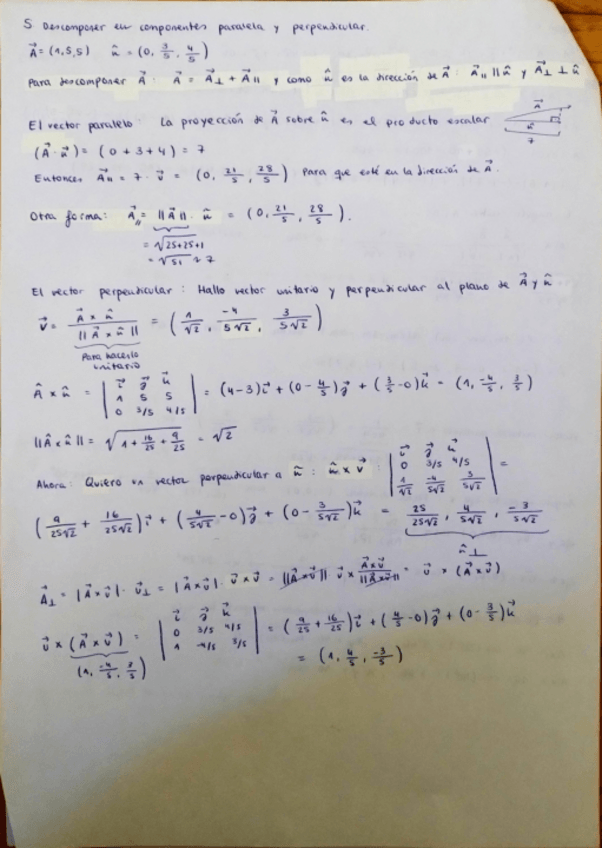 5 Descomponer en componentes paralela y perpendicular.
A⃗ = (1,5,5)   û = (0, 3/5, 4/5)
Para descomponer A⃗ : A⃗ = A⃗⊥ + A⃗∥ y como û es la dirección de A⃗ : A⃗∥ ∥ û y A⃗⊥ ⊥ û
El vector paralelo: La proyección de A⃗ sobre û es el producto escalar
(A⃗ · û) = (0 + 3 + 4) = 7
A⃗
û
7
Entonces A⃗∥ = 7 · û = (0, 21/5, 28/5) Para que esté en la dirección de A⃗.
Otra forma: A⃗∥ = ||A⃗|| · û = (0, 21/5, 28/5).
= √25+25+1
= √51 ≈ 7
El vector perpendicular : Hallo vector unitario y perpendicular al plano de A⃗ y û.
v⃗ = A⃗ × û / ||A⃗ × û|| = (1/√2, -4/5√2, 3/5√2)
Para hacerlo
unitario
A⃗ × û = | i⃗ j⃗ k⃗ ; 1 5 5 ; 0 3/5 4/5 | = (4-3)i⃗ + (0-4/5)j⃗ + (3/5-0)k⃗ = (1, -4/5, 3/5)
||A⃗ × û|| = √1 + 16/25 + 9/25 = √2
Ahora: Quiero un vector perpendicular a û : û × v⃗ : | i⃗ j⃗ k⃗ ; 0 3/5 4/5 ; 1/√2 -4/5√2 3/5√2 | =
(9/25√2 + 16/25√2)i⃗ + (4/5√2 - 0)j⃗ + (0 - 3/5√2)k⃗ = 25/25√2, 4/5√2, -3/5√2)
û⊥
A⃗⊥ = |A⃗×û| · û⊥ = |A⃗×û| · û×v⃗ = ||A⃗×û|| û × A⃗×û / ||A⃗×û|| = û × (A⃗×û)
û × (A⃗×û) = | i⃗ j⃗ k⃗ ; 0 3/5 4/5 ; 1 -4/5 3/5 | = (9/25 + 16/25)i⃗ + (4/5 - 0)j⃗ + (0 - 3/5)k⃗
(1, -4/5, 3/5)
= (1, 4/5, -3/5)